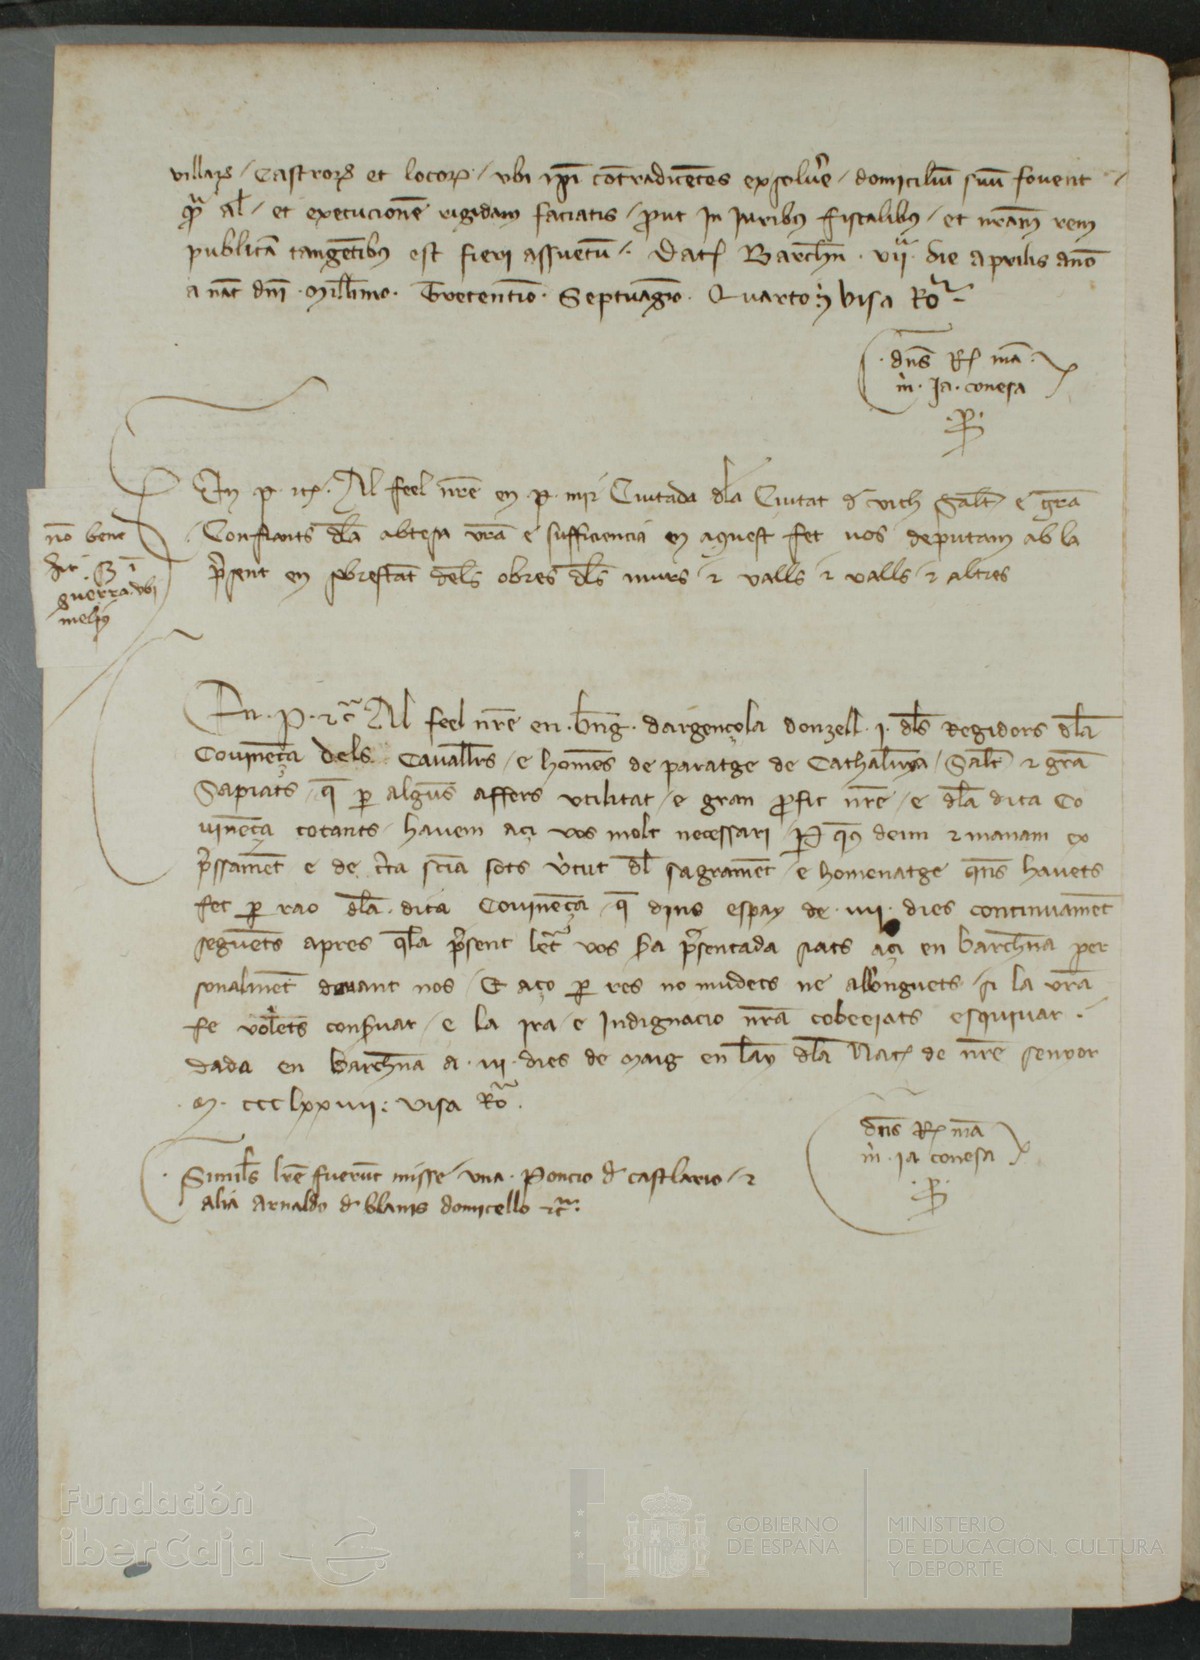 villarum / Castrorum et locorum / ubi ip̃i cõtradicẽtes exsolũe / domiciliũ suũ fovent /
et execucionẽ rigidam faciatis / prout in iuribus fiscalibus / et nr̃am rem
publicã tangẽtibus est fieri assuetũ /. Dat̃ Barchñ . vii . die Aprilis año
a nat̃ dñi . Mill̃imo . Trecentẽio . Septuagiõ . Quarto // Visa Rõ
. dñs R̃ mã .
m̃ . Ja . conesa
.p.
En p. etc̃. Al feel nr̃e en p. mir Ciutada dl̃a Ciutat d vich Sal̃t e gr̃a
Confiants dl̃a abtesa vr̃a e sufficiencia en aquest fet vos deputam ab la
p̃sent en sobrestãt del̃s obres dl̃s murs et valls et valls et altres
nõ bene
sit . R̃ ĩ
guerra . ubi
melius
En . P . etc̃ Al feel nr̃e en . bñg . dargençola donzell . i . dl̃s Regidors dl̃a
Covinẽça dels Cavall̃rs / e homẽs de paratge de Cathal̃nya / Sal̃t et gr̃a
Sapiats / q̃ per algũs affers utilitat / e gran profit nr̃e / e dl̃a dita Co
vinẽça tocants / havem açi vos molt necessari / P q̃us deim et manam ex
p̃ssamẽt e de c̃ta sciã sots ṽtut dl̃ sagramẽt / e homenatge qñs havets
fet per rao dl̃a . dita Covinẽça / q̃ dins espay de . iiii . dies continuamẽt
seguẽts apres q̃la p̃sent let̃ vos s̃a p̃sentada siats açi en barch̃na per
sonalmẽt davant nos / E aço per res no mudets ne allonguets / si la vr̃a
fe volẽts cons̃var / e la ira / e indignacio nr̃a cobeeiats esquivar .
dada en barch̃na a . iii . dies de Maig en lãy dl̃a Nat̃ de nr̃e senyor
. M . ccc lxxiiii : visa Rõ .
dñs R̃ mã
m̃ . Ja conesa
.p.
. Simil̃s lr̃e fuerũt misse / una . Poncio d castlario / et
alia Arnaldo d blanis domicello etc̃.
Fundación
iberCaja
GOBIERNO
DE ESPAÑA
MINISTERIO
DE EDUCACIÓN, CULTURA
Y DEPORTE